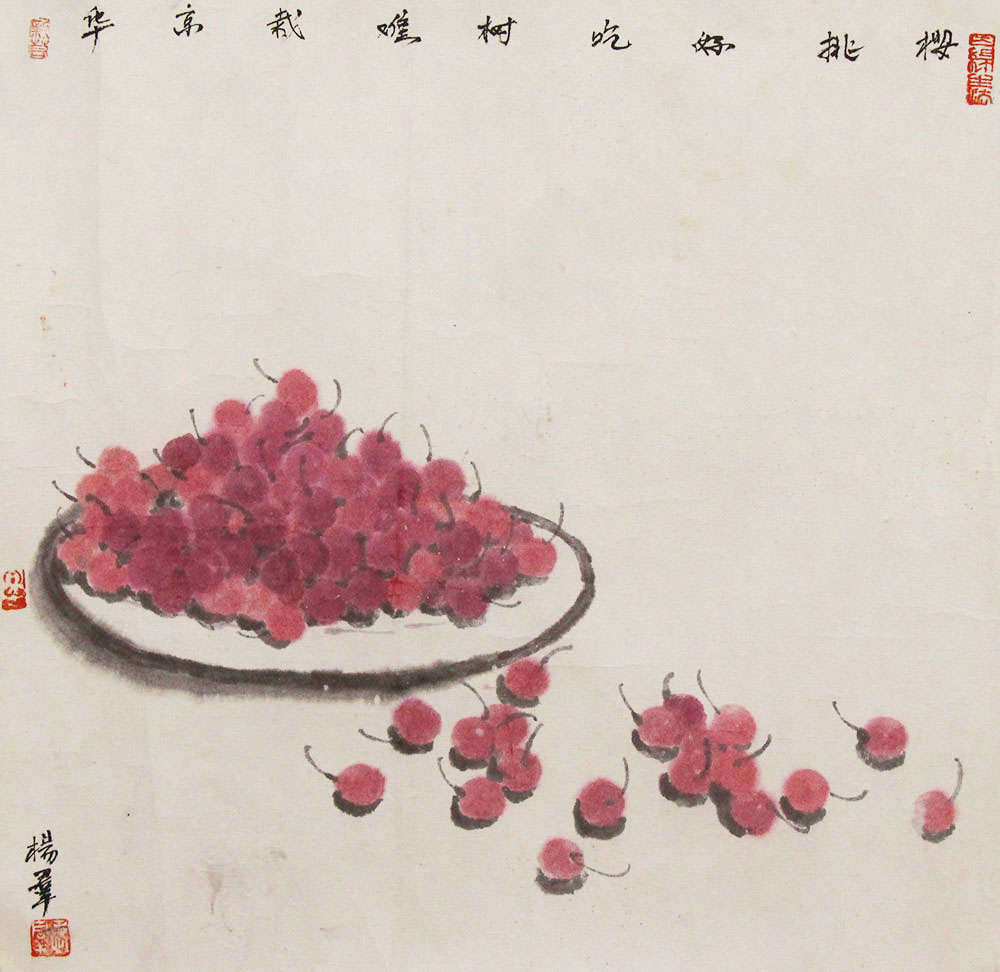 樱挑好吃树难栽京华
楊羣